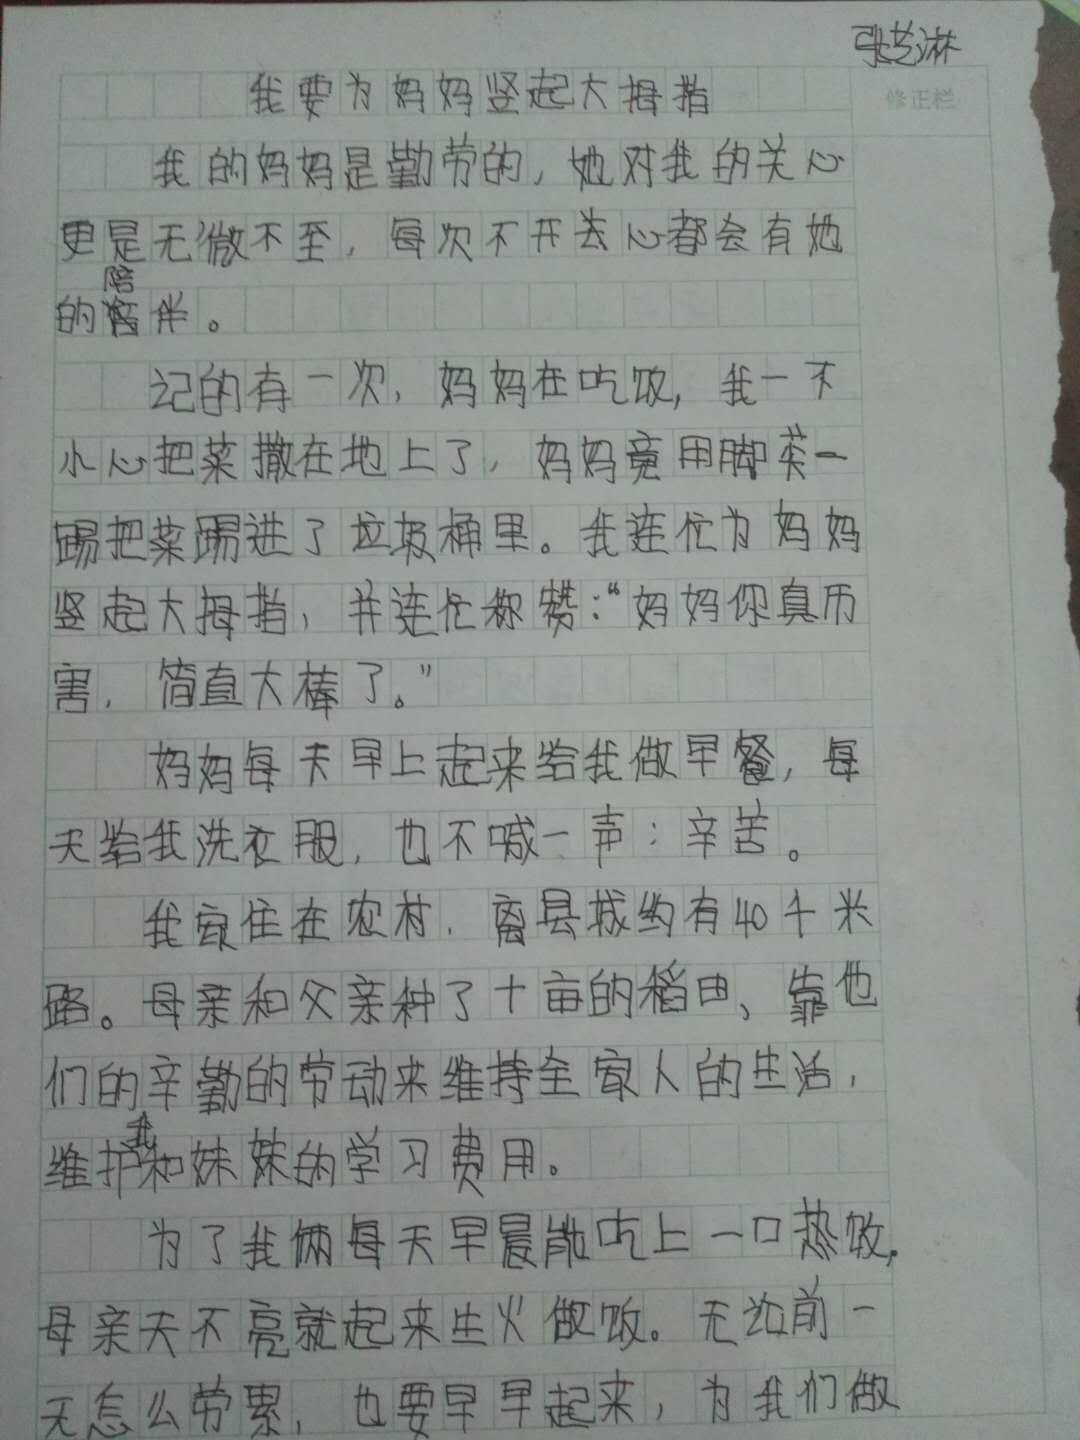 张芝淋
修正栏
我要为妈妈竖起大拇指
我的妈妈是勤劳的，她对我的关心
更是无微不至，每次不开心都会有她
的陪伴。
记的有一次，妈妈在吃饭，我一不
小心把菜撒在地上了，妈妈竟用脚一
踢把菜踢进了垃圾桶里。我连忙为妈妈
竖起大拇指，并连忙称赞：“妈妈你真历
害，简直大棒了。”
妈妈每天早上起来给我做早餐，每
天给我洗衣服，也不喊一声：辛苦。
我家住在农村，离县城约有40千米
路。母亲和父亲种了十亩的稻田、靠他
们的辛勤的劳动来维持全家人的生活，
维护我和妹妹的学习费用。
为了我俩每天早晨能吃上一口热饭，
母亲天不亮就起来生火做饭。无论前一
天怎么劳累，也要早早起来，为我们做